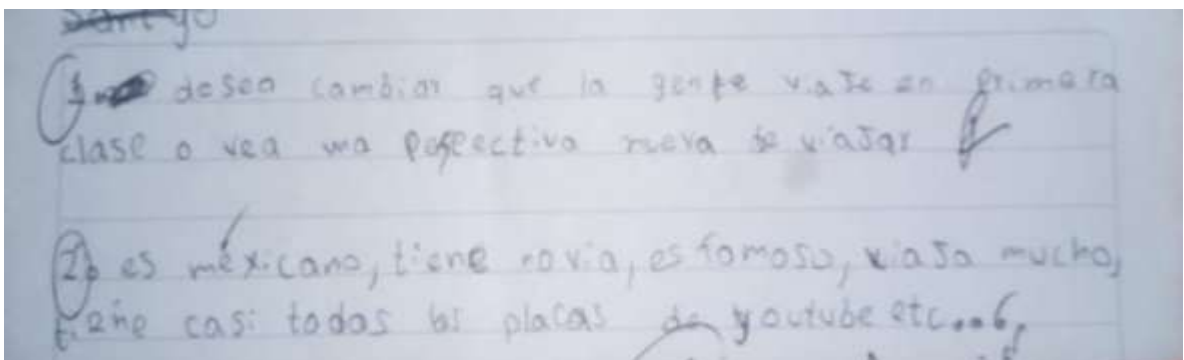 1. desea cambiar que la gente viaje en primera
clase o vea una perspectiva nueva de viajar
2. es méxicano, tiene novia, es famoso, viaja mucho,
tiene casi todas las placas de youtube etc...